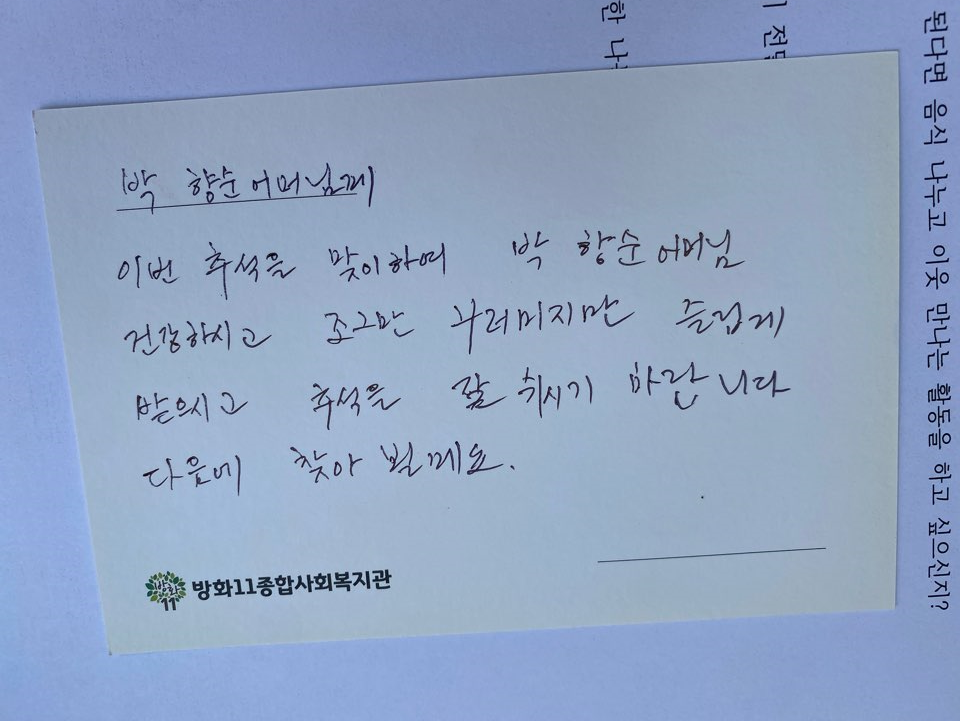 박 향순 어머님께
이번 추석을 맞이하여 박 향순 어머님
건강하시고 조그만 꾸러미지만 즐겁게
받으시고 추석을 잘 쉬시기 바랍니다
다음에 찾아 뵐께요.
방화11종합사회복지관
방화
11
된다면 음식 나누고 이웃 만나는 활동을 하고 싶으신지?
한 나